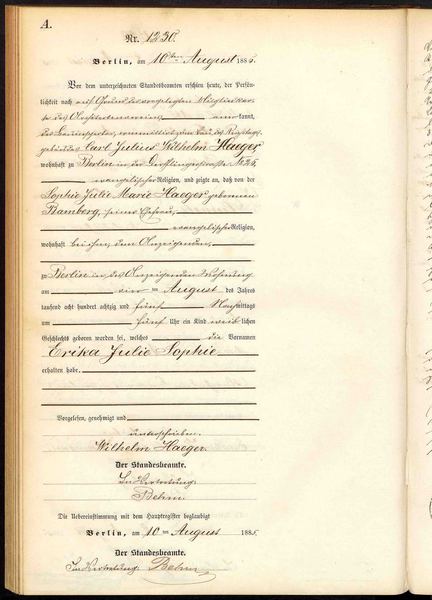 A.
Nr. 1230.
Berlin, am 10ten August 1885.
Vor dem unterzeichneten Standesbeamten erschien heute, der Persön-
lichkeit nach auf Grund der vorgelegten Mitgliedskar-
te des Architektenvereins kannt,
der
Carl Julius Wilhelm Haeger
wohnhaft zu Berlin in der Derfflingerstraße № 25,
evangelischer Religion, und zeigte an, daß von der
Sophie Julie Marie Haeger geborenen
Bamberg, seiner Ehefrau,
evangelischer Religion,
wohnhaft bei ihm, dem Anzeigenden,
zu Berlin in des Anzeigenden Wohnung
am vier ten August des Jahres
tausend acht hundert achtzig und fünf Nachmittags
um fünf Uhr ein Kind weiblichen
Geschlechts geboren worden sei, welches die Vornamen
Erika Julie Sophie
erhalten habe,
Vorgelesen, genehmigt und
unterschrieben.
Wilhelm Haeger
Der Standesbeamte.
In Vertretung.
Behm.
Die Uebereinstimmung mit dem Hauptregister beglaubigt
Berlin, am 10 ten August 1885.
Der Standesbeamte.
In Vertretung. Behm